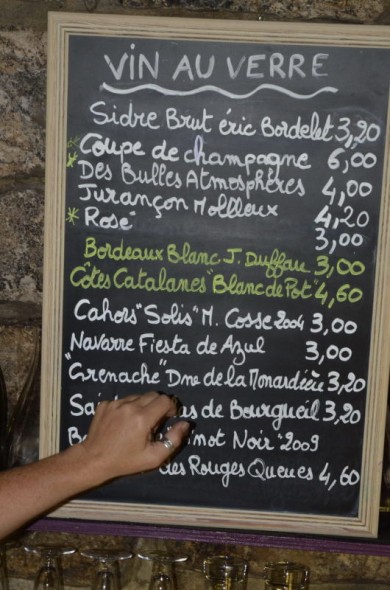 VIN AU VERRE
Sidre Brut éric Bordelet 3,20
* Coupe de champagne 6,00
* Des Bulles Atmosphères 4,00
Jurançon Moelleux 4,20
* Rosé 3,00
Bordeaux Blanc J. Duffau 3,00
Côtes Catalanes "Blanc de Pot" 4,60
Cahors "Solis" M. Cosse 2004 3,00
Navarre Fiesta de Azul 3,00
"Grenache" Dne de la Monardière 3,20
de Bourgueil 3,20
Noir 2009
des Rouges Queues 4,60